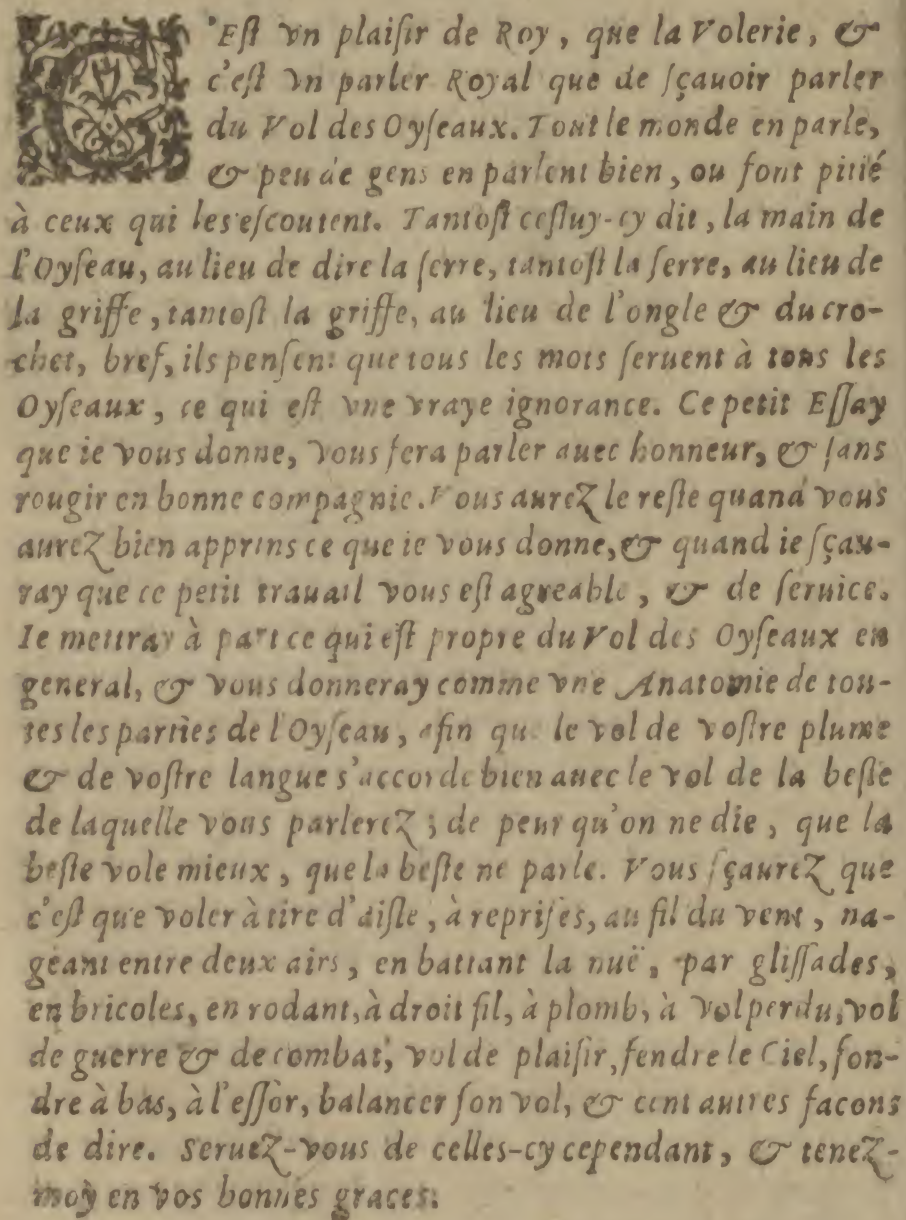 C'Est vn plaisir de Roy, que la Volerie, &
c'est vn parler Royal que de sçauoir parler
du Vol des Oyseaux. Tout le monde en parle,
& peu de gens en parlent bien, ou font pitié
à ceux qui les escoutent. Tantost cestuy-cy dit, la main de
l'Oyseau, au lieu de dire la serre, tantost la serre, au lieu de
la griffe, tantost la griffe, au lieu de l'ongle & du cro-
chet, bref, ils pensent que tous les mots seruent à tous les
Oyseaux, ce qui est vne vraye ignorance. Ce petit Essay
que ie vous donne, vous fera parler auec honneur, & sans
rougir en bonne compagnie. Vous aurez le reste quand vous
aurez bien apprins ce que ie vous donne, & quand ie sçau-
ray que ce petit trauail vous est agreable, & de seruice.
Ie mettray à part ce qui est propre du Vol des Oyseaux en
general, & vous donneray comme vne Anatomie de tou-
tes les parties de l'Oyseau, afin que le vol de vostre plume
& de vostre langue s'accorde bien auec le vol de la beste
de laquelle vous parlerez; de peur qu'on ne die, que la
beste vole mieux, que la beste ne parle. Vous sçaurez que
c'est que voler à tire d'aisle, à reprises, au fil du vent, na-
geant entre deux airs, en battant la nuë, par glissades,
en bricoles, en rodant, à droit fil, à plomb, à vol perdu, vol
de guerre & de combat, vol de plaisir, fendre le Ciel, fon-
dre à bas, à l'essor, balancer son vol, & cent autres facons
de dire. Seruez-vous de celles-cy cependant, & tenez-
moy en vos bonnes graces.